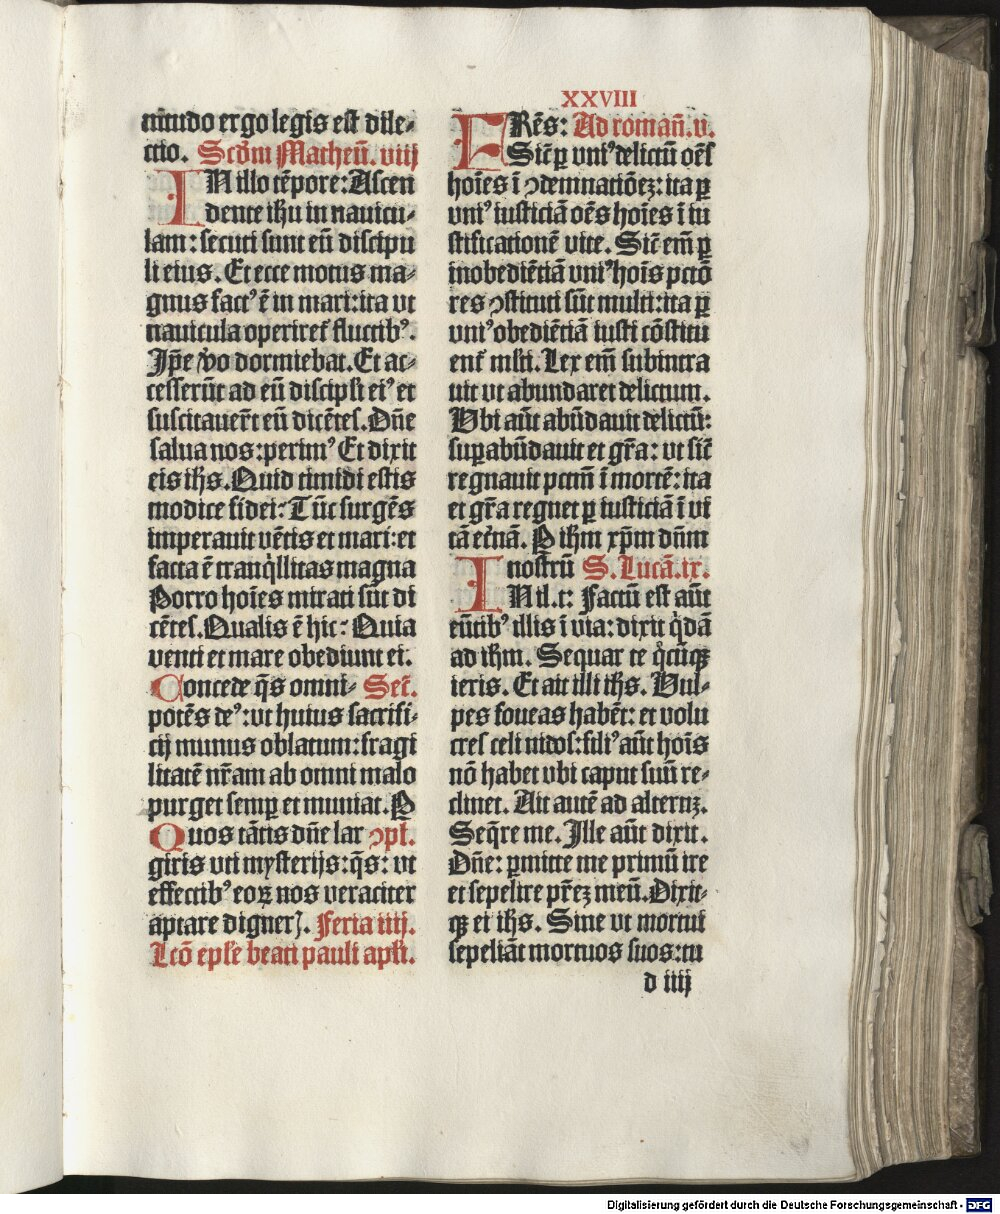 XXVIII
nitudo ergo legis est dile⸗
ctio. Scd̄m Matheū. viij
IN illo tēpore: Ascen
dente ih̄u in nauicu⸗
lam: secuti sunt eū discipu
li eius. Et ecce motus ma⸗
gnus factꝰ ē in mari: ita vt
nauicula operiret᷑ fluctibꝰ.
Ip̄e v̓o dormiebat. Et ac⸗
cesserūt ad eū discipl̓i eiꝰ et
suscitauer̄t eū dicētes. Dn̄e
salua nos: perimꝰ Et dixit
eis ih̄s. Quid timidi estis
modice fidei: Tūc surgēs
imperauit vētis et mari: et
facta ē tranq̇llitas magna
Porro hoīes mirati sūt di
cētes. Qualis ē hic: Quia
venti et mare obediunt ei.
Concede q̄s omni⸗ Secr̄.
potēs deꝰ: vt huius sacrifi⸗
cij munus oblatum: fragi
litatē nr̄am ab omni malo
purget semꝑ et muniat. P
Quos tātis dn̄e lar ꝯpl̓.
giris vti mysterijs: q̄s: vt
effectibꝰ eoꝝ nos veraciter
aptare digner̓. Feria iiij.
Lcō ep̄le beati pauli apl̓i.
FRēs: Ad romañ. v.
Sic̄ ꝑ vniꝰ delictū oēs
hoīes ī ꝯdemnatiōeꝫ: ita ꝑ
vniꝰ iusticiā oēs hoīes ī iu
stificationē vite. Sic̄ em̄ ꝑ
inobediētiā vniꝰ hoīs pctō
res ꝯstituti sūt multi: ita ꝑ
vniꝰ obediētiā iusti cōstitu
ent᷑ m̄lti. Lex em̄ subintra
uit vt abundaret delictum.
Vbi aūt abūdauit delictū:
suꝑabūdauit et gr̄a: vt sic̄
regnauit pctm̄ ī mortē: ita
et gr̄a regnet ꝑ iusticiā ī vi
tā et̓nā. P ih̄m xp̄m dn̄m
nostrū S. Lucā. ix.
IN il. t: Factū est aūt
eūtibꝰ illis ī via: dixit q̇dā
ad ih̄m. Sequar te q̇cūqꝫ
ieris. Et ait illi ih̄s. Vul⸗
pes foueas habēt: et volu
cres celi nidos: filiꝰ aūt hoīs
nō habet vbi caput suū re⸗
clinet. Ait autē ad alterūꝫ.
Seq̄re me. Ille aūt dixit.
Dn̄e: ꝑmitte me primū ire
et sepelire pr̄eꝫ meū. Dixit⸗
qꝫ ei ih̄s. Sine vt mortui
sepeliāt mortuos suos: tu
d iiij
Digitalisierung gefördert durch die Deutsche Forschungsgemeinschaft - DFG